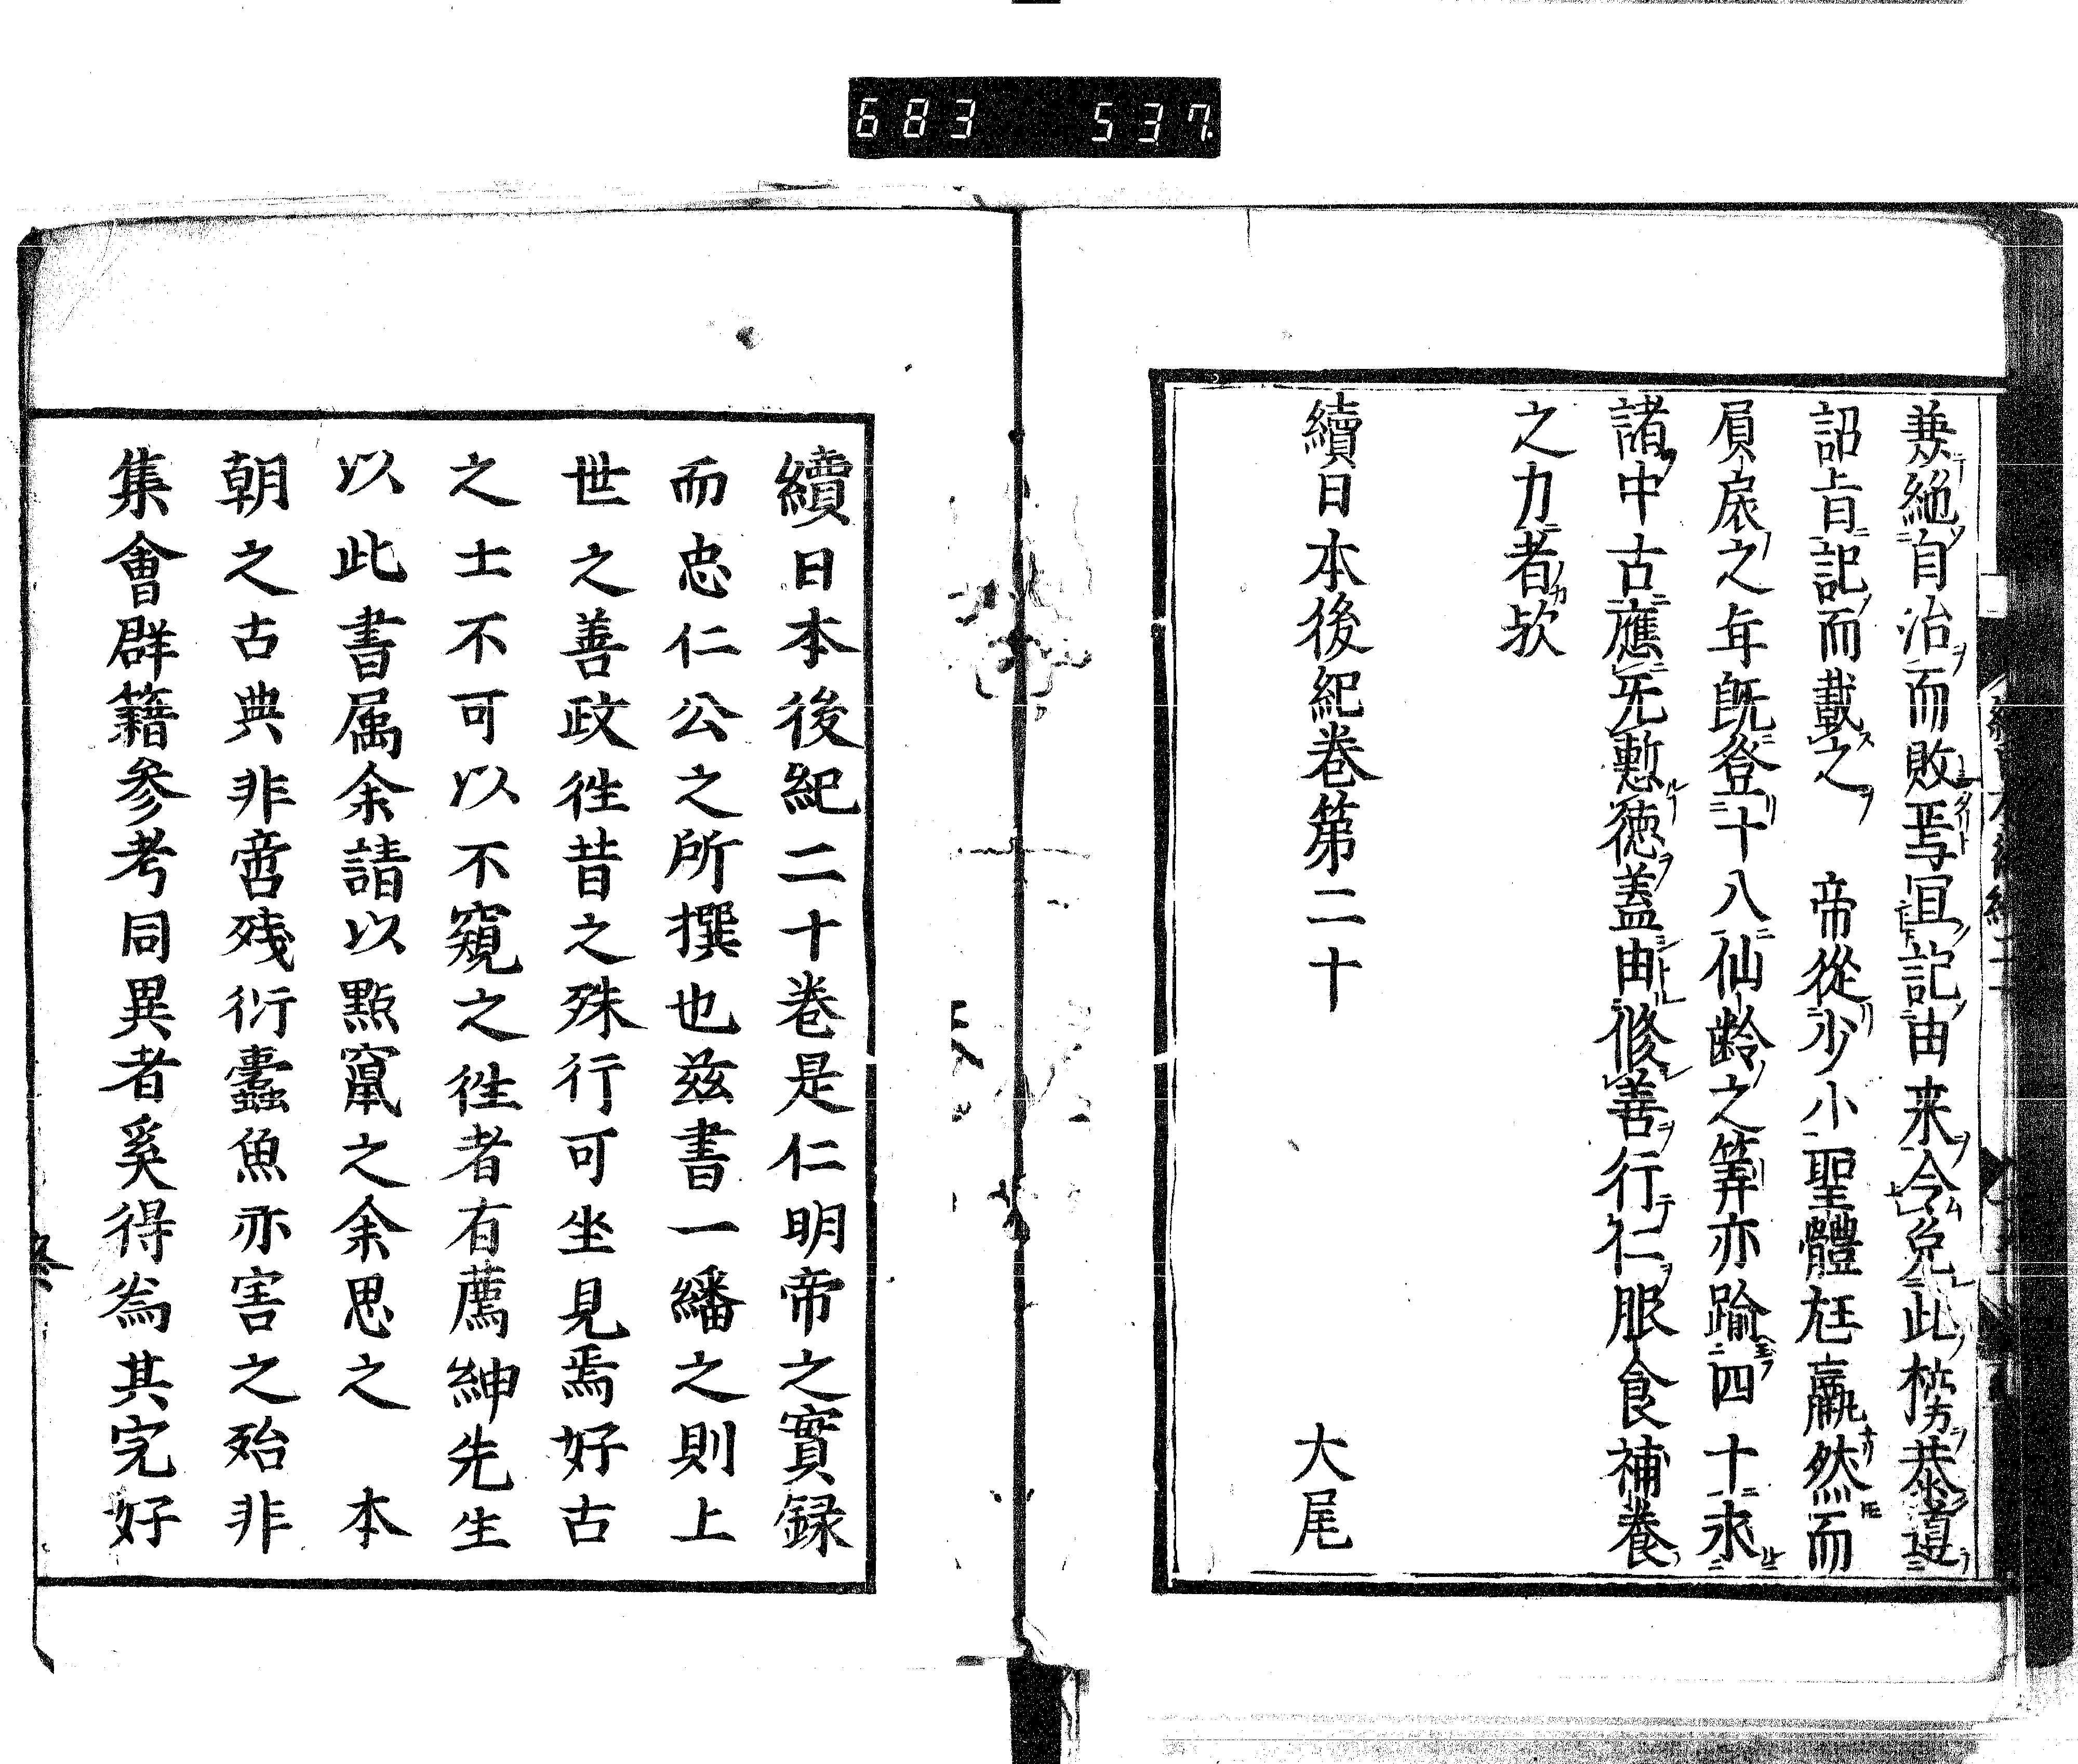 683 537
兼絕自治而敗焉宜記由来令免此榜恭遵
詔旨記而載之　帝從少小聖體尫羸然而
負扆之年既登十八仙齡之筭亦踰四十求
諸中古應无慙徳蓋由修善行仁服食補養
之力者欤
續日本後紀卷第二十　大尾
續日本後紀二十卷是仁明帝之實録
而忠仁公之所撰也兹書一繙之則上
世之善政徃昔之殊行可坐見焉好古
之士不可以不窺之徃者有薦紳先生
以此書属余請以點竄之余思之　本
朝之古典非啻残衍蠧魚亦害之殆非
集會群籍参考同異者奚得為其完好